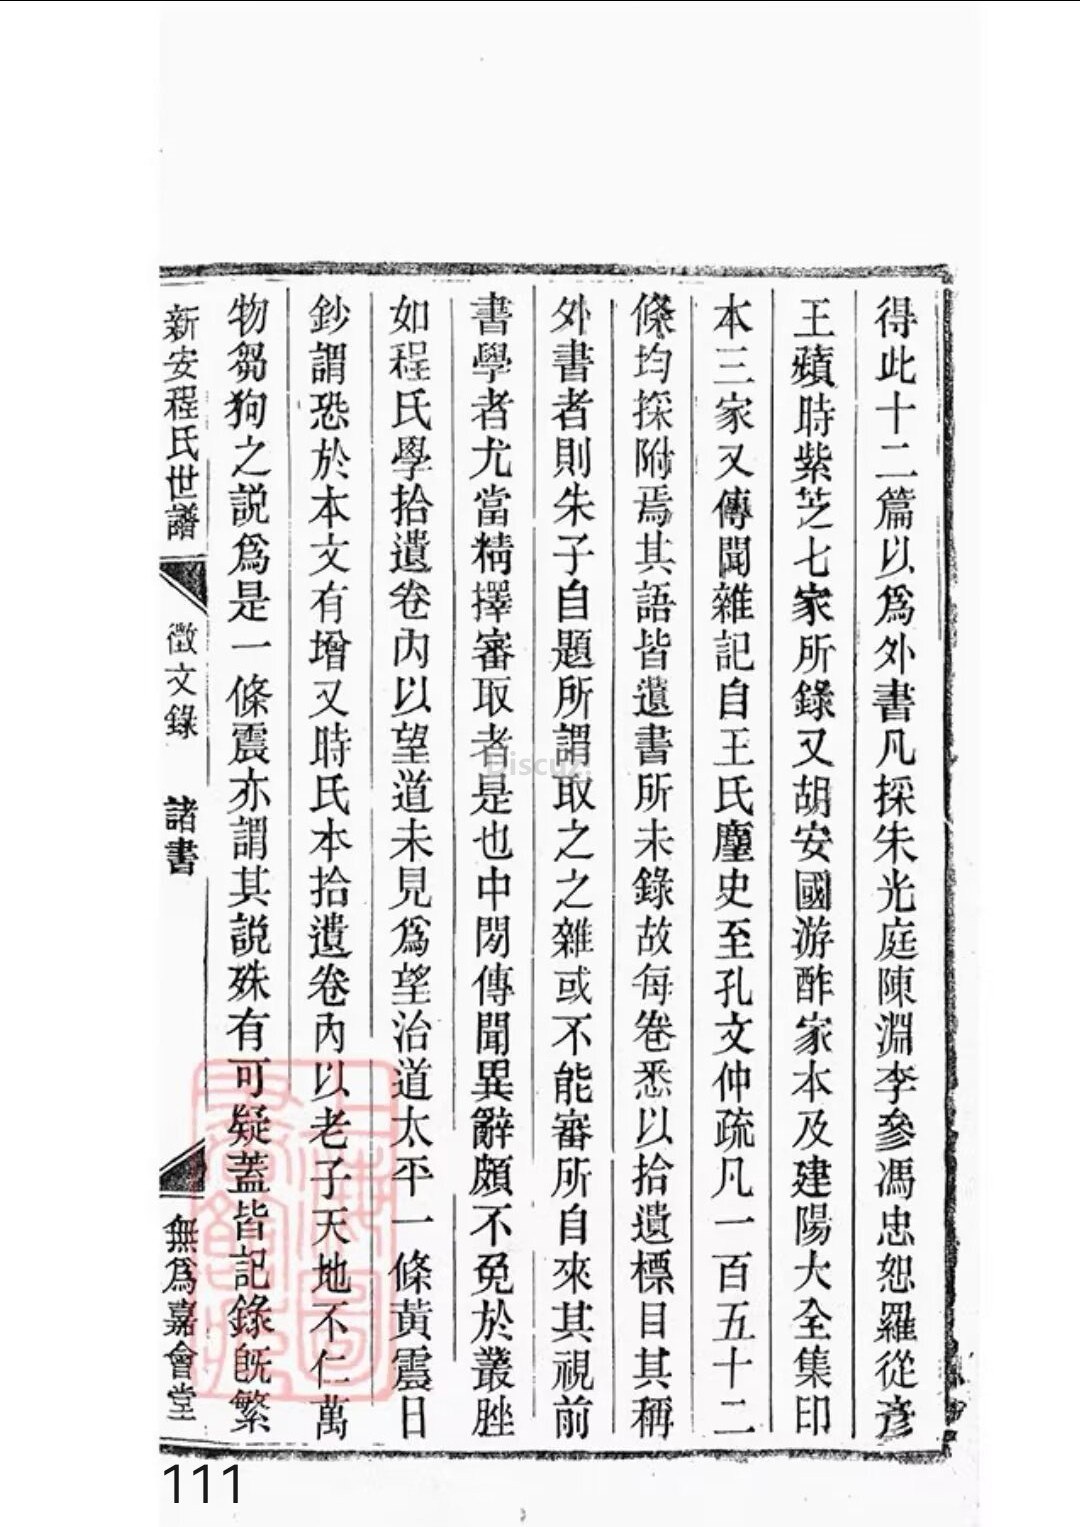 得此十二篇以爲外書凡採朱光庭陳淵李參馮忠恕羅從彥
王蘋時紫芝七家所錄又胡安國游酢家本及建陽大全集印
本三家又傳聞雜記自王氏麈史至孔文仲疏凡一百五十二
條均採附焉其語皆遺書所未錄故每卷悉以拾遺標目其稱
外書者則朱子自題所謂取之之雜或不能審所自來其視前
書學者尤當精擇審取者是也中閒傳聞異辭頗不免於叢脞
如程氏學拾遺卷內以望道未見爲望治道太平一條黃震日
鈔謂恐於本文有增又時氏本拾遺卷內以老子天地不仁萬
物芻狗之説爲是一條震亦謂其説殊有可疑蓋皆記錄旣繁
新安程氏世譜
徵文錄
諸書
無爲嘉會堂
Discuz!
111